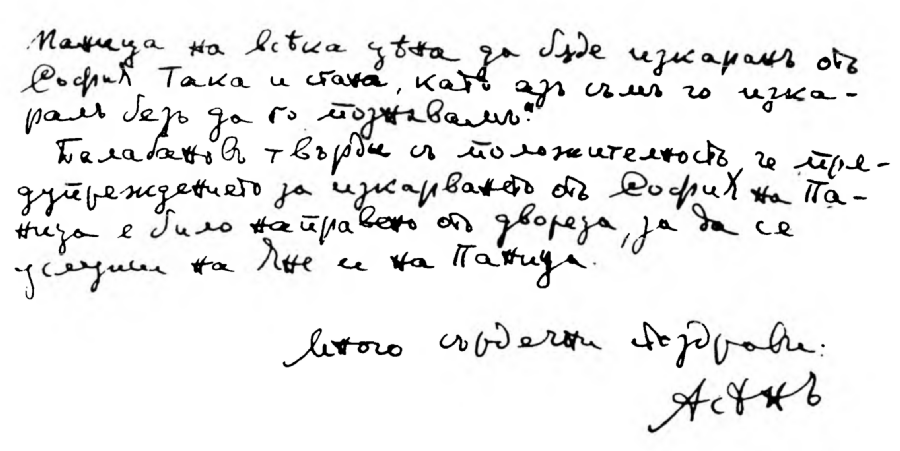 Паница на всѣка цѣна да бѫде изкаранъ отъ
София Така и стана, като азъ съмъ го изка-
ралъ безъ да го познавамъ."
Балабановъ твърди съ положителность, че пре-
дупреждението за изкарването отъ София на Па-
ница е било направено отъ двореца, за да се
услужи на Яне и на Паница.
Много сърдечни поздрави:
Асѣнъ